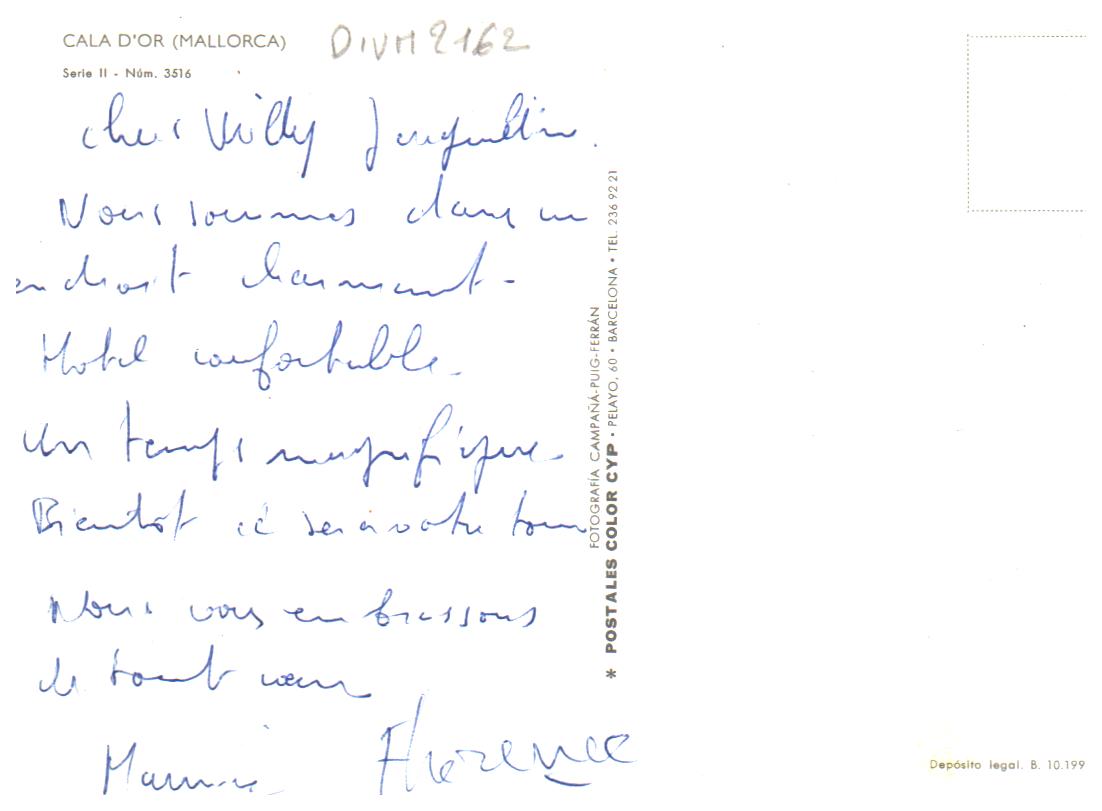 CALA D'OR (MALLORCA)
DIVM 2162
Serie II - Núm. 3516
chers Willy Jacqueline.
Nous sommes dans un
endroit charmant -
Hotel confortable.
Un temps magnifique
Bientôt ce sera votre tour
Nous vous embrassons
de tout cœur
Florence
FOTOGRAFÍA CAMPAÑÁ-PUIG-FERRÁN
* POSTALES COLOR CYP • PELAYO, 60 • BARCELONA • TEL. 236 92 21
Depósito legal. B. 10.199